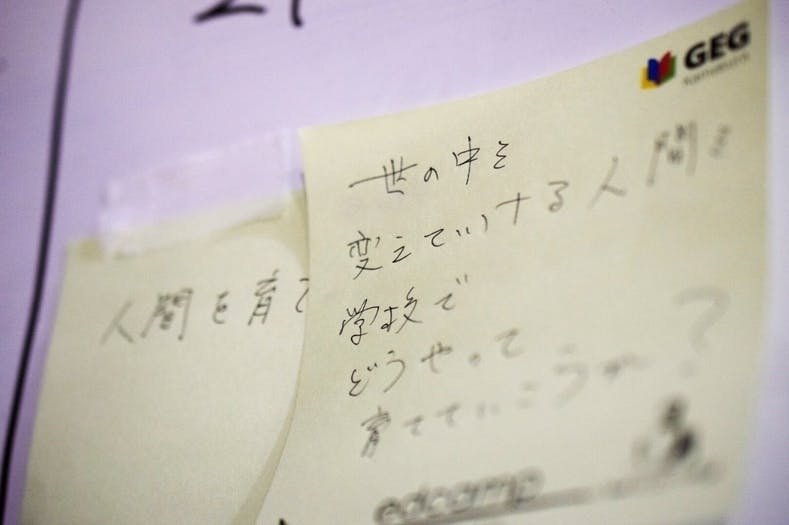 人間を育て
GEG
世の中を
変えていける人間を
学校で
どうやって
育てていこうか?
edcamp